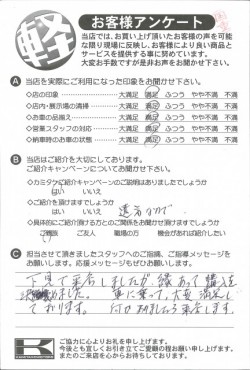 軽
お客様アンケート
当店では、お買い上げ頂いたお客様の声を可能
な限り現場に反映し、お客様により良い商品と
サービスを提供する事に努めています。
大変お手数ですが是非お声をお聞かせ下さい。
A 当店を実際にご利用になった印象をお聞かせ下さい。
◇店の印象 大満足 満足 ふつう やや不満 不満
◇店内・展示場の清掃 大満足 満足 ふつう やや不満 不満
◇お車の品揃え 大満足 満足 ふつう やや不満 不満
◇営業スタッフの対応 大満足 満足 ふつう やや不満 不満
◇納車時のお車の状態 大満足 満足 ふつう やや不満 不満
B 当店はご紹介を大切にしております。
ご紹介キャンペーンについてお聞かせ下さい。
◇カミタケご紹介キャンペーンのご説明はありましたでしょうか
はい いいえ
◇ご紹介を頂けますでしょうか
はい いいえ
◇具体的にご紹介頂ける方とのご関係をお聞かせ頂けますでしょうか
ご親族 ご友人 職場の方 機会があれば紹介したい
C 担当させて頂きましたスタッフへのご指摘、ご指導メッセージを
お願いします。応援メッセージもぜひお願いします。
下見で来店しましたが、縁あって購入を
車に乗って、大変満足し
ております。
K
ご協力に心よりお礼を申し上げます。
今後とも宜しくお引き立てご愛顧の程お願い申し上げます。
またのご来店を心からお待ちしております。